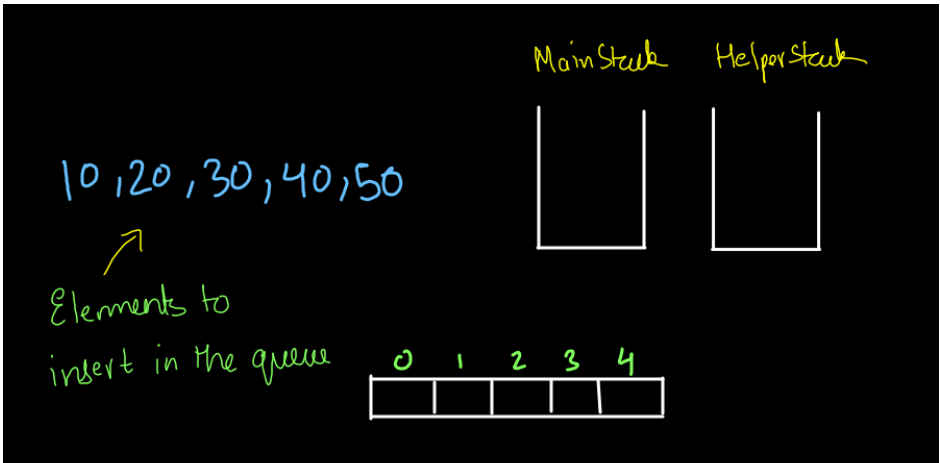 Main Stack Helper Stack
10,20,30,40,50
Elements to
insert in the queue
0 1 2 3 4